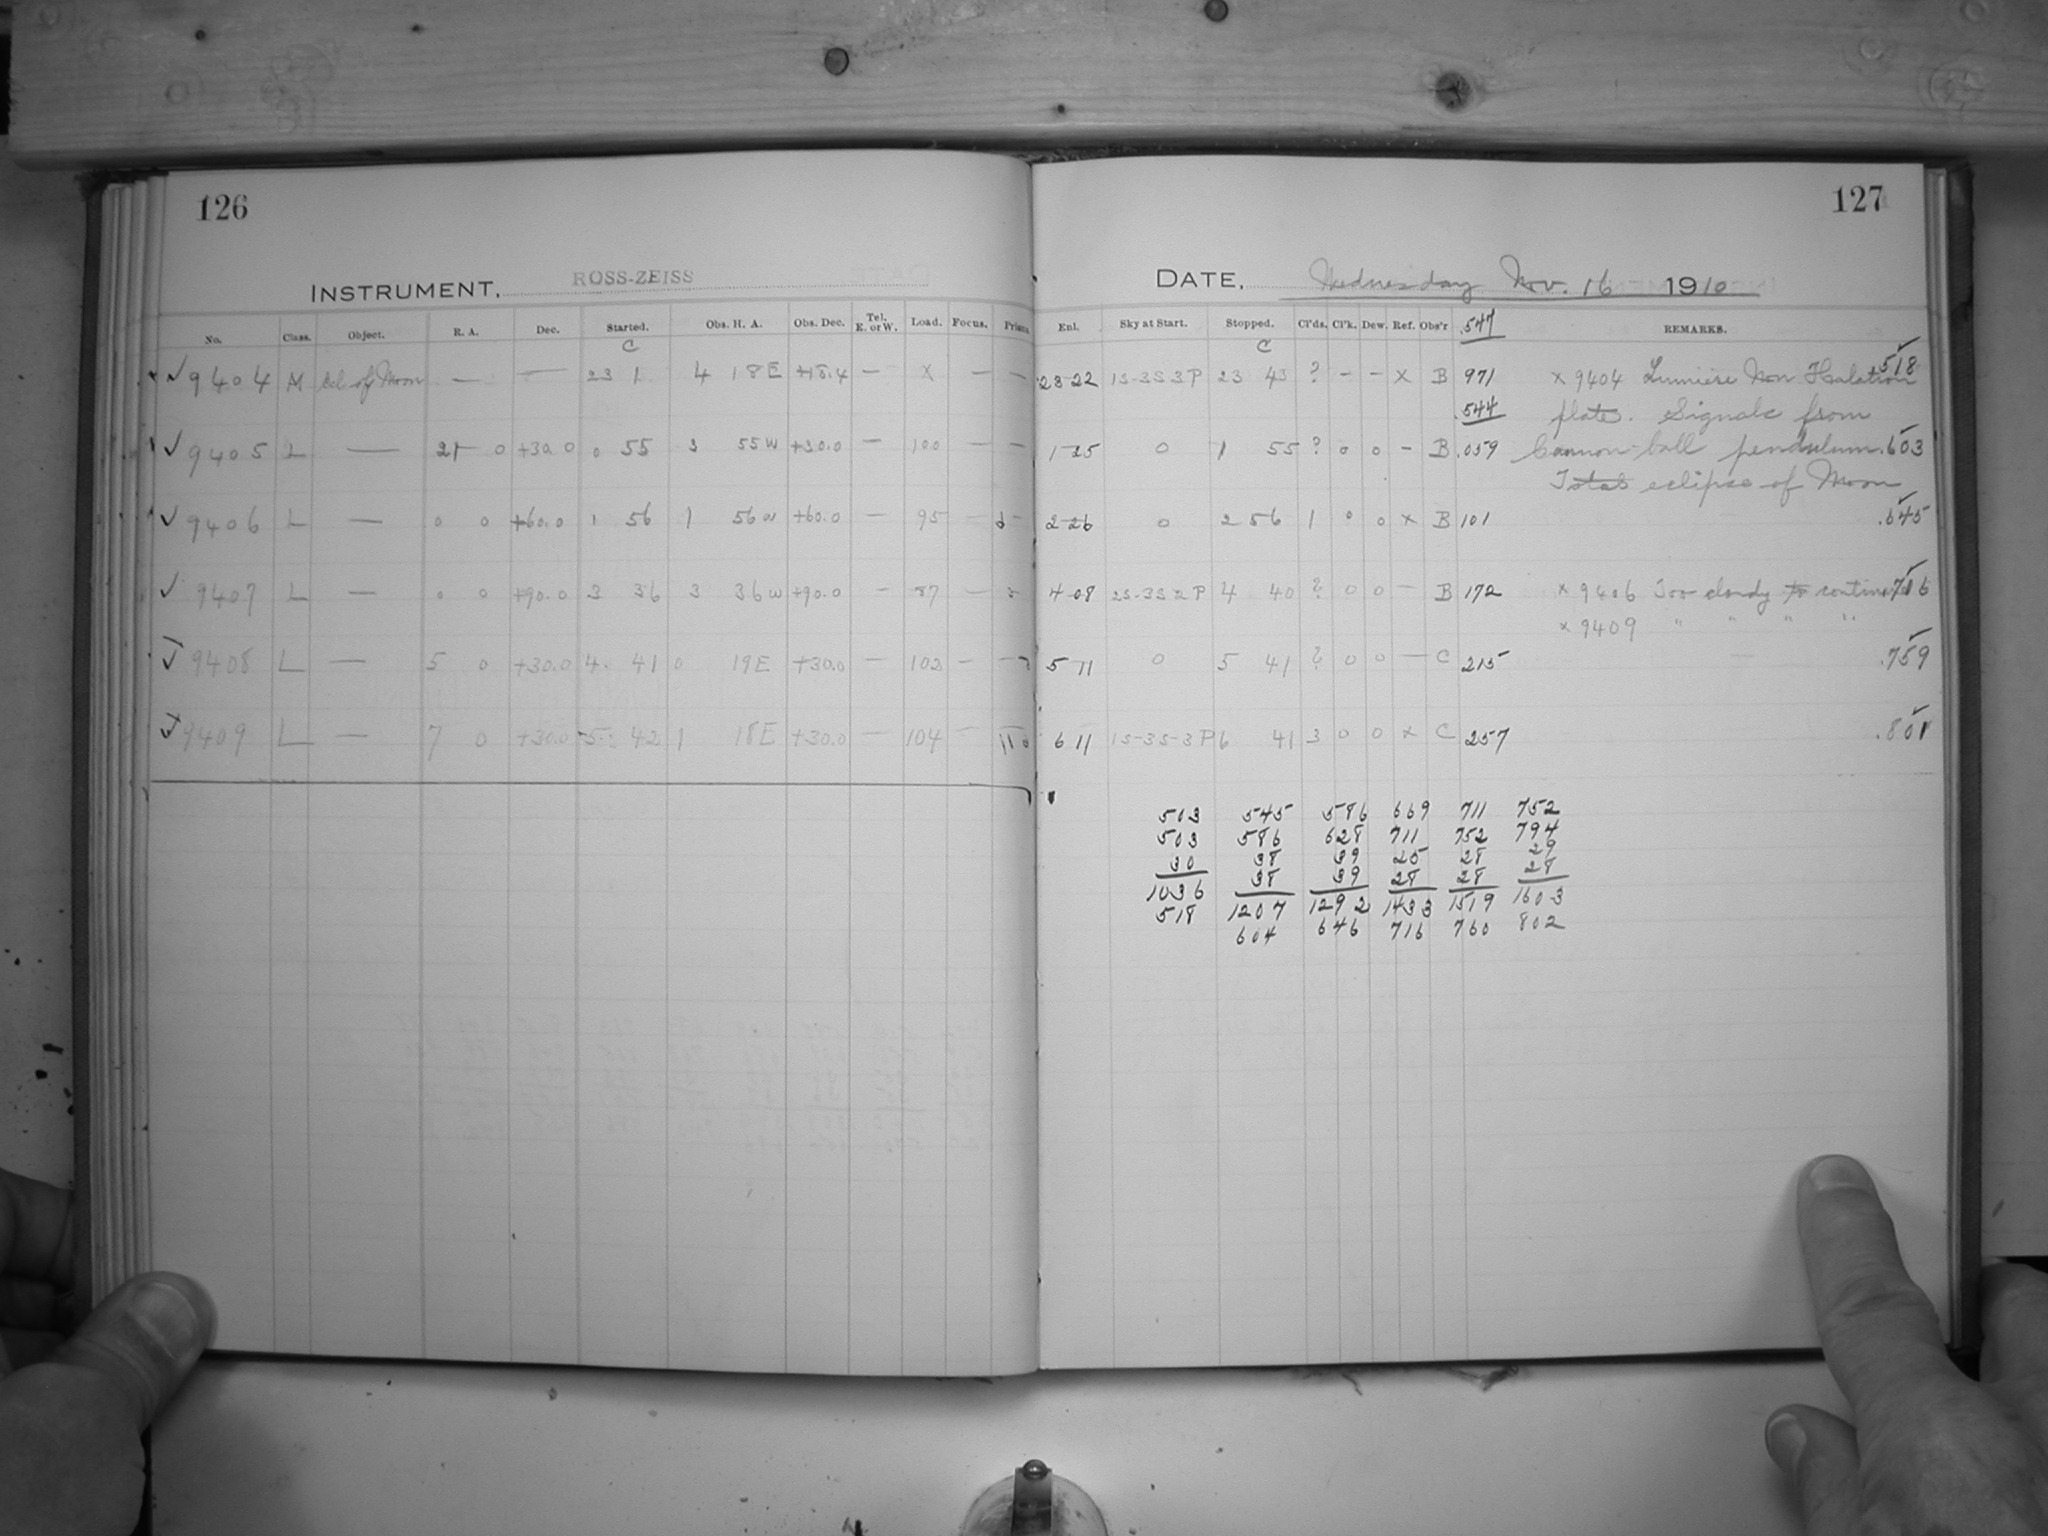 126
INSTRUMENT, ROSS-ZEISS
No. Class. Object. R. A. Dec. Started. Obs. H. A. Obs. Dec. Tel. E. or W. Load. Focus. Prism.
C
✓ 9404 M Ecl of Moon — — 23 1 4 18 E +18.4 — X — —
✓ 9405 L — 21 0 +30.0 0 55 3 55 W +30.0 — 100 — —
✓ 9406 L — 0 0 +60.0 1 56 1 56 W +60.0 — 95 —
✓ 9407 L — 0 0 +90.0 3 36 3 36 W +90.0 — 87 —
✓ 9408 L — 5 0 +30.0 4 41 0 19 E +30.0 — 102 — —
✓ 9409 L — 7 0 +30.0 5 42 1 18 E +30.0 — 104 —
127
DATE, Wednesday Nov. 16 1910
Enl. Sky at Start. Stopped. Cl'ds. Cl'k. Dew. Ref. Obs'r .547 REMARKS.
C
23-22 1S-3S 3P 23 43 ? - - x B 971 x 9404 Lumiere Non Halation .518
.544 plate. Signals from
1-25 0 1 55 ? 0 0 - B .059 Cannon-ball pendulum. .603
Total eclipse of Moon
2-26 0 2 56 1 0 0 x B 101 .645
4-08 2S-3S 2P 4 40 ? 0 0 - B 172 x 9406 Too cloudy to continue .716
x 9409 " " " "
5 11 0 5 41 ? 0 0 — C 215 .759
6 11 1S-3S-3P 6 41 3 0 0 x C 257 .801
503 545 586 669 711 752
503 586 628 711 752 794
30 38 39 25 28 29
38 39 28 28 28
1036 1207 1292 1433 1519 1603
518 604 646 716 760 802